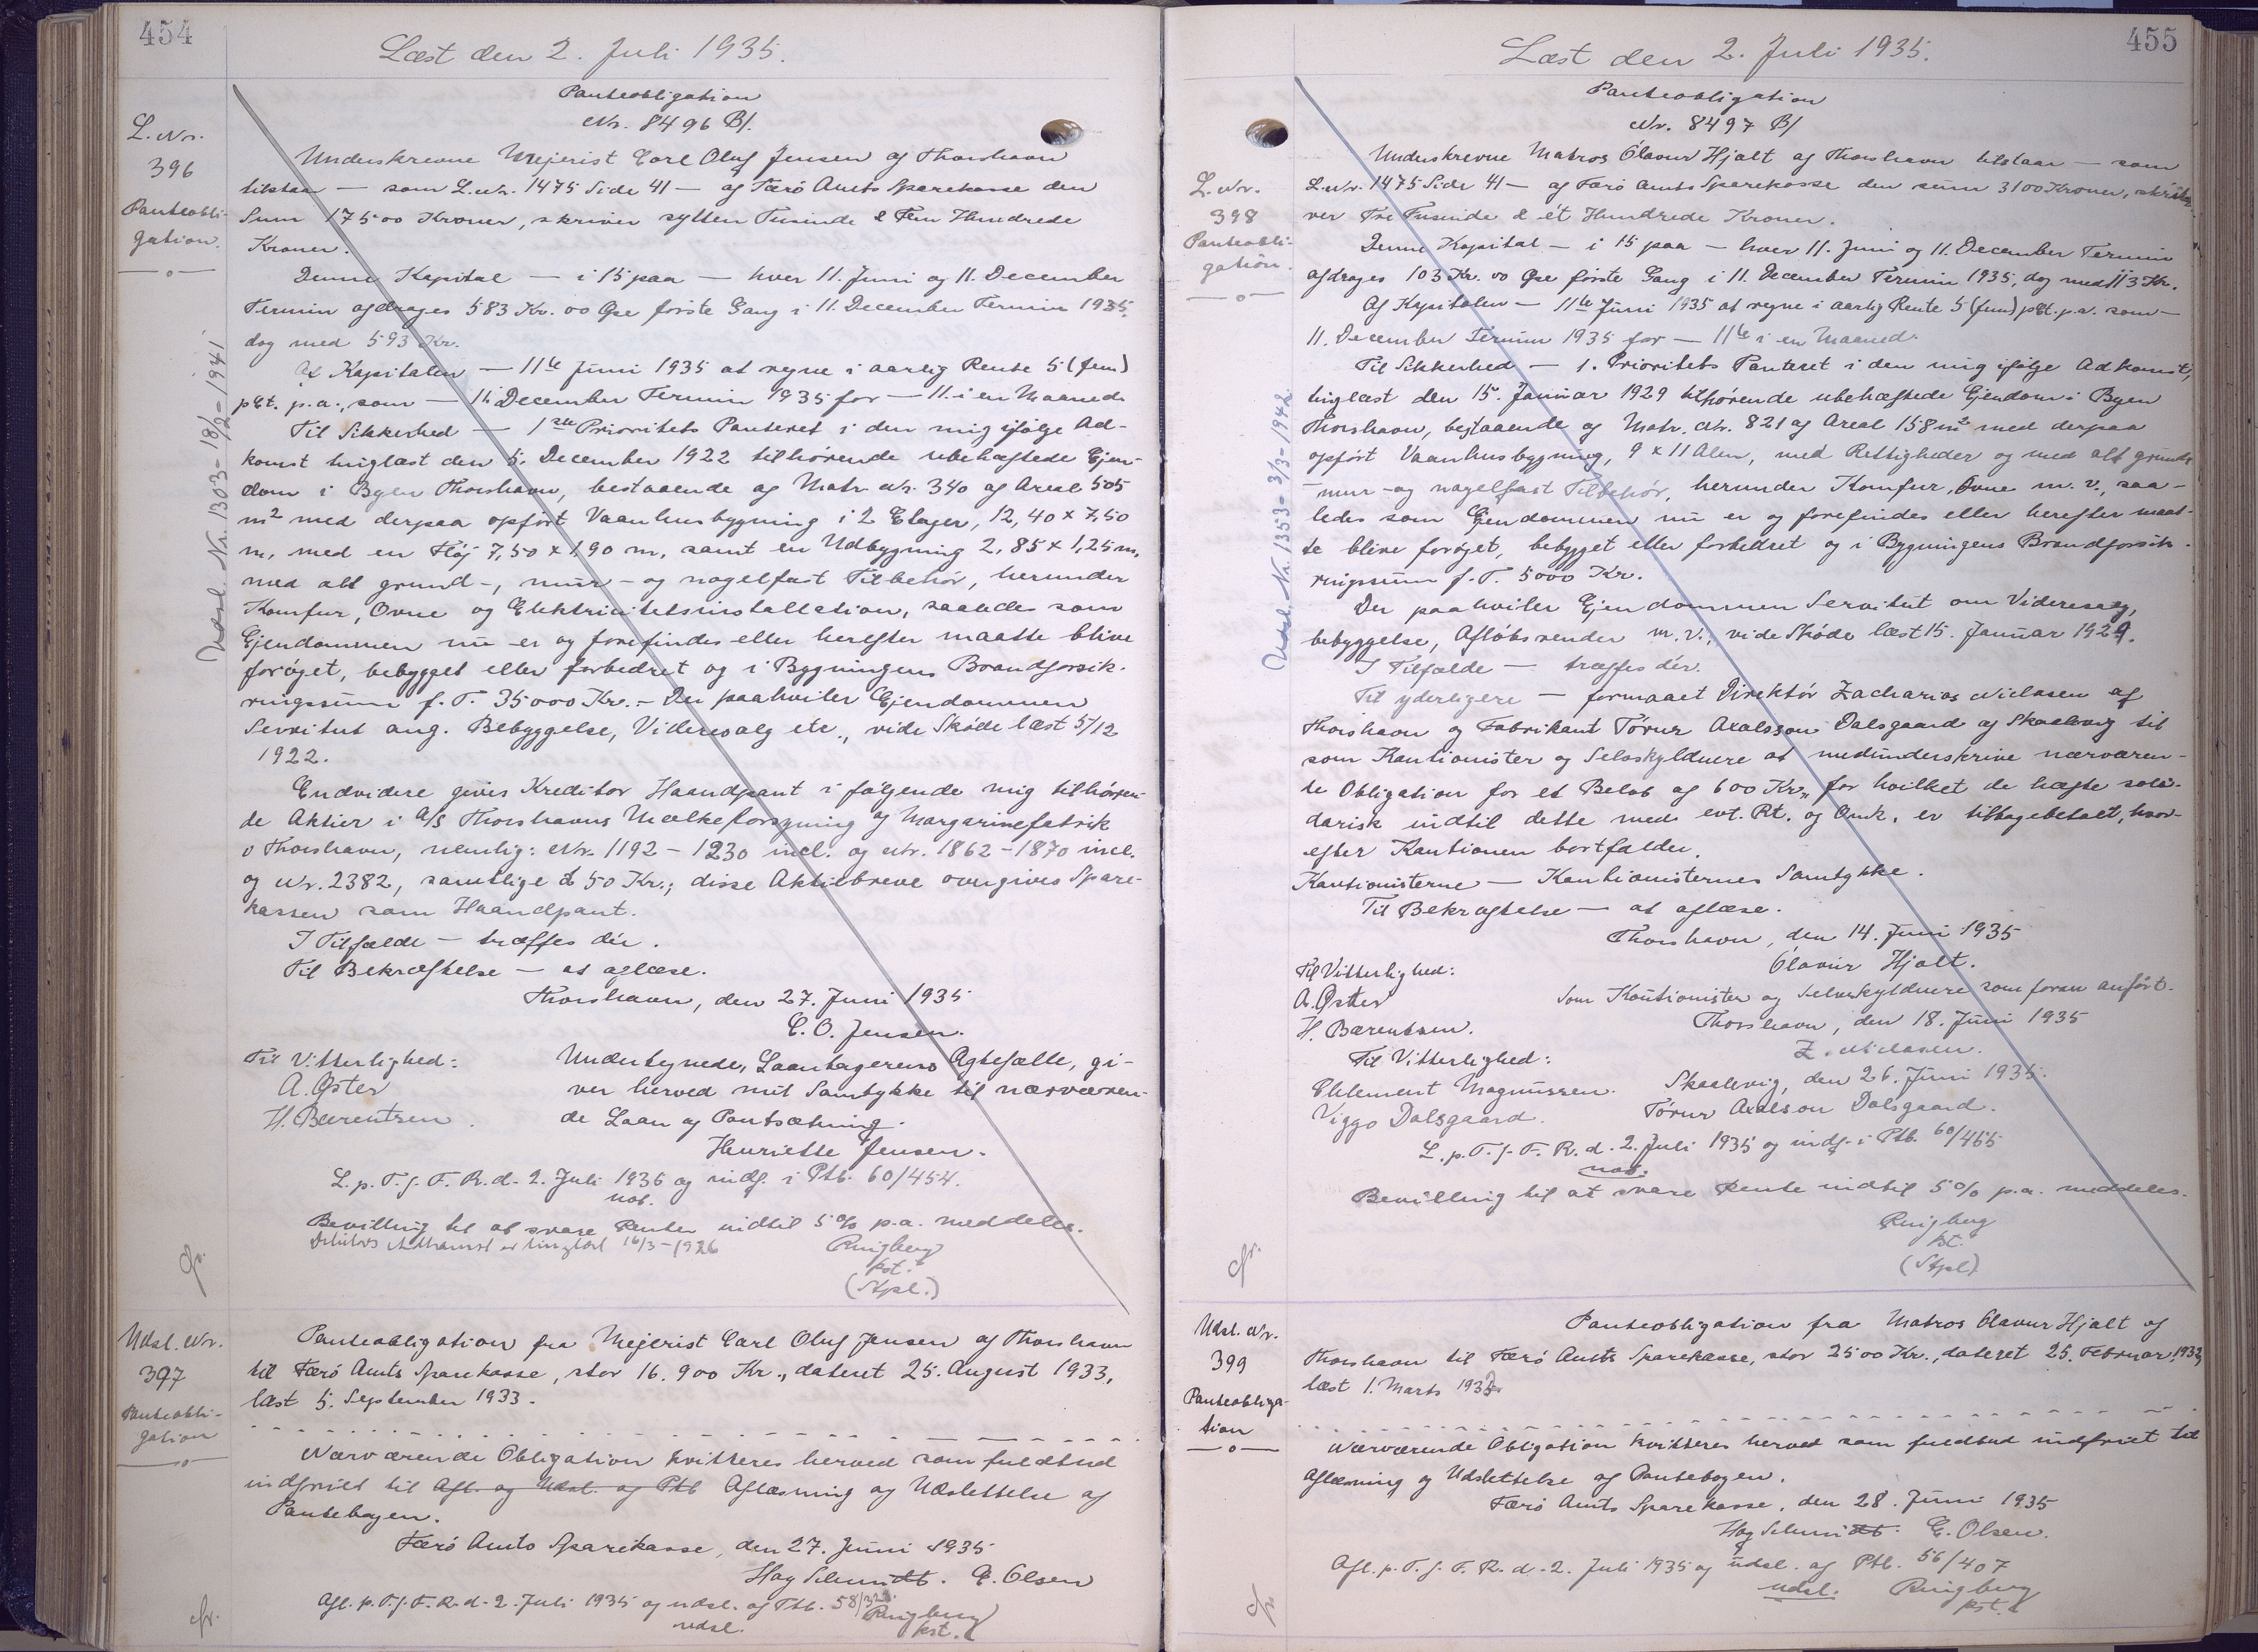 454
Læst den 2. Juli 1935.
Panteobligation
Nr. 8496 B/.
L. Nr.
396
Panteobli-
gation.
Underskrevne Mejerist Carl Oluf Jensen af Thorshavn
tilstaar — som L. Nr. 1475 Side 41 — af Færö Amts Sparekasse den
Sum 17500 Kroner, skriver sytten Tusinde & Fem Hundrede
Kroner.
Denne Kapital — i 15 paa — hver 11. Juni og 11. December
Termin afdrages 583 Kr. 00 Øre förste Gang i 11. December Termin 1935,
dog med 593 Kr.
Af Kapitalen — 11te Juni 1935 at regne i aarlig Rente 5 (fem)
pCt. p.a., som — 11 December Termin 1935 for — 11. i en Maaned.
Til Sikkerhed — 1ste Prioritets Panteret i den mig ifölge Ad-
komst tinglæst den 5. December 1922 tilhörende ubehæftede Ejen-
dom i Byen Thorshavn, bestaaende af Matr. Nr. 340 af Areal 505
m² med derpaa opfört Vaanhusbygning i 2 Etager, 12,40 x 7,50
m, med en Flöj 7,50 x 1,90 m, samt en Udbygning 2,85 x 1,25 m,
med alt grund-, mur- og nagelfast Tilbehör, herunder
Komfur, Ovne og Elektricitetsinstallation, saaledes som
Ejendommen nu er og forefindes eller herefter maatte blive
foröget, bebygget eller forbedret og i Bygningens Brandforsik-
ringssum f. T. 35000 Kr. – Der paahviler Ejendommen
Servitut ang. Bebyggelse, Videresalg etc., vide Sköde læst 5/12
1922.
Endvidere gives Kreditor Haandpant i fölgende mig tilhören-
de Aktier i A/S Thorshavns Mælkeforsyning og Margarinefabrik
v Thorshavn, nemlig: Nr. 1192 – 1230 incl. og Nr. 1862 – 1870 incl.
og Nr. 2382, samtlige á 50 Kr.; disse Aktiebreve overgives Spare-
kassen som Haandpant.
I Tilfælde — træffes dér.
Til Bekræftelse — at aflæse.
Thorshavn, den 27. Juni 1935
C. O. Jensen.
Til Vitterlighed:
A. Øster
H. Bærentsen.
Undertegnede, Laantagerens Ægtefælle, gi-
ver herved mit Samtykke til nærværen-
de Laan og Pantsætning.
Henriette Jensen.
L. p. T. f. F. R. d. 2. Juli 1935 og indf. i Ptb. 60/454.
not.
Bevilling til at svare Renter indtil 5 % p.a. meddeles.
Debitors Adkomst er tinglæst 16/3 – 1926
Ringberg
kst.
(Stpl.)
Udsl. Nr. 1303 – 18/12 – 1941
cfr.
Udsl. Nr.
397
Panteobli-
gation
Panteobligation fra Mejerist Carl Oluf Jensen af Thorshavn
til Færö Amts Sparekasse, stor 16.900 Kr., dateret 25. August 1933,
læst 5. September 1933.
Nærværende Obligation kvitteres herved som fuldtud
indfriet til Afl. og Udsl. af Ptb Aflæsning og Udslettelse af
Pantebogen.
Færö Amts Sparekasse, den 27. Juni 1935
Hag Schmidt. E. Olsen
Afl. p. T. f. F. R. d. 2. Juli 1935 og udsl. af Ptb. 58/
udsl.
Ringberg
kst.
cfr.
455
Læst den 2. Juli 1935.
Panteobligation
Nr. 8497 B/
L. Nr.
398
Panteobli-
gation.
Underskrevne Matros Ólavur Hjalt af Thorshavn tilstaar — som
L. Nr. 1475 Side 41 — af Færö Amts Sparekasse den sum 3100 Kroner, skri-
ver Tre Tusinde & ét Hundrede Kroner.
Denne Kapital — i 15 paa — hver 11. Juni og 11. December Termin
afdrages 103 Kr. 00 Øre förste Gang i 11. December Termin 1935, dog med 113 Kr.
Af Kapitalen — 11te Juni 1935 at regne i aarlig Rente 5 (fem) pCt. p.a. som —
11. December Termin 1935 for — 11te i en Maaned.
Til Sikkerhed — 1. Prioritets Panteret i den mig ifölge Adkomst,
tinglæst den 15. Januar 1929 tilhörende ubehæftede Ejendom i Byen
Thorshavn, bestaaende af Matr. Nr. 821 af Areal 158 m² med derpaa
opfört Vaanhusbygning, 9 x 11 Alen, med Rettigheder og med alt grund-
mur- og nagelfast Tilbehör, herunder Komfur, Ovne m. v., saa-
ledes som Ejendommen nu er og forefindes eller herefter maat-
te blive foröget, bebygget eller forbedret og i Bygningens Brandforsik-
ringssum f. T. 5000 Kr.
Der paahviler Ejendommen Servitut om Videresalg,
bebyggelse, Aflöbsrender m. v., vide Sköde læst 15. Januar 1929.
I Tilfælde — træffes dér.
Til yderligere — formaaet Direktör Zacharias Niclasen af
Thorshavn og Fabrikant Tórur Axelsson Dalsgaard af Skaalevig til
som Kautionister og Selvskyldnere at medunderskrive nærværen-
de Obligation for et Belöb af 600 Kr., for hvilket de hæfte soli-
darisk indtil dette med evt. Rt. og Omk. er tilbagebetalt, hvor-
efter Kautionen bortfalder.
Kautionisterne — Kautionisternes Samtykke.
Til Bekræftelse — at aflæse.
Thorshavn, den 14. Juni 1935
Ólavur Hjalt.
Til Vitterlighed:
A. Øster
H. Bærentsen.
Som Kautionister og Selvskyldnere som foran anfört.
Thorshavn, den 18. Juni 1935
Z. Niclasen.
Til Vitterlighed:
Chlement Magnussen.
Viggo Dalsgaard.
Skaalevig, den 26. Juni 1935.
Tórur Axelson Dalsgaard.
L. p. T. f. F. R. d. 2. Juli 1935 og indf. i Ptb. 60/455
not.
Bevilling til at svare Rente indtil 5 % p.a. meddeles.
Ringberg
kst.
(Stpl)
Udsl. Nr. 1353 – 3/3 – 1942.
cfr.
Udsl. Nr.
399
Panteobliga-
tion
Panteobligation fra Matros Olavur Hjalt af
Thorshavn til Færö Amts Sparekasse, stor 2500 Kr., dateret 25. Februar 1932,
læst 1. Marts 1932.
Nærværende Obligation kvitteres herved som fuldtud indfriet til
Aflæsning og Udslettelse af Pantebogen.
Færö Amts Sparekasse, den 28. Juni 1935
Hag Schmidt. E. Olsen.
Afl. p. T. f. F. R. d. 2. Juli 1935 og udsl. af Ptb. 56/407
udsl.
Ringberg
kst.
cfr.